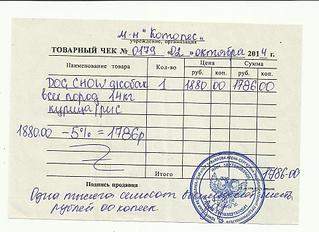 м-н "Котопес"
учреждение, организация
ТОВАРНЫЙ ЧЕК № 0179 "02" октября 2014 г.
Наименование товара Кол-во Цена Сумма
руб. коп. руб. коп.
DOG CHOW д/собак 1 1880 00 1786 00
всех пород 14кг
курица/рис
1880.00 - 5% = 1786р
Итого 1786-00
Подпись продавца
Одна тысяча семьсот восемьдесят шесть
рублей 00 копеек